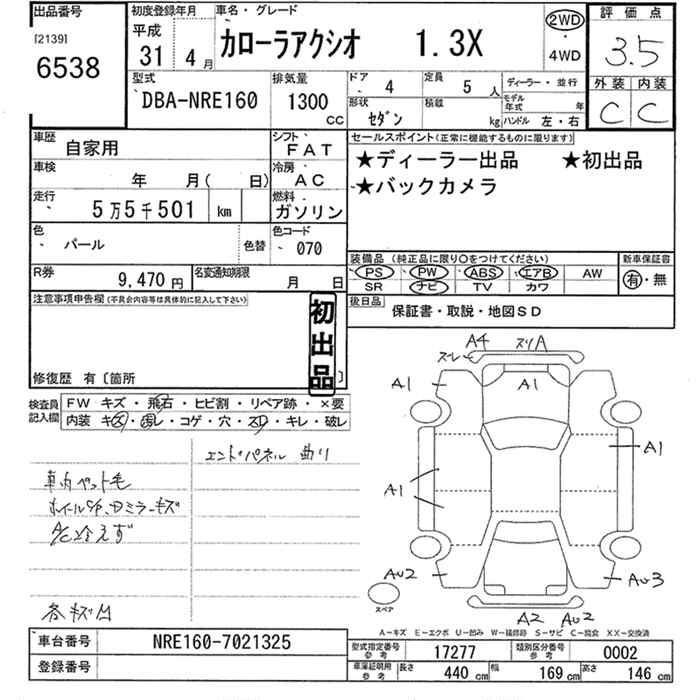 出品番号 初度登録年月 車名・グレード 評価点
[2139] 平成 2WD
6538 31 4月 カローラアクシオ 1.3X ・ 3.5
4WD
型式 排気量 ドア 4 定員 5人 ディーラー・並行 外装 内装
DBA-NRE160 1300 cc 形状 セダン 積載 kg モデル年式 年 C C
ハンドル 左・右
車歴 自家用 シフト FAT セールスポイント(正常に機能するものに限ります)
車検 年 月( 日) 冷房 AC ★ディーラー出品 ★初出品
走行 5万5千501 km 燃料 ガソリン ★バックカメラ
色 パール 色替 色コード 070
装備品(純正品に限り○をつけてください) 新車保証書
R券 9,470円 名変通知期限 月 日 PS PW ABS エアB AW 有・無
SR ナビ TV カワ
注意事項申告欄(不具合内容等は具体的に記入して下さい) 後日品 保証書・取説・地図SD
初出品
修復歴 有〔箇所 〕
検査員記入欄 FW キズ・飛石・ヒビ割・リペア跡・×要
内装 キズ・汚レ・コゲ・穴・スレ・キレ・破レ
エンドパネル 曲り
車内ペット毛
A/C冷えず
A4 スリA
スレ
A1 A1
A1
A1
AU2 AU3
スペア
A2 AU2
A-キズ E-エクボ U-凹み W-補修跡 S-サビ C-腐食 XX-交換済
車台番号 NRE160-7021325 型式指定番号 参考 17277 類別区分番号 参考 0002
登録番号 車庫証明用 参考 長さ 440 cm 幅 169 cm 高さ 146 cm